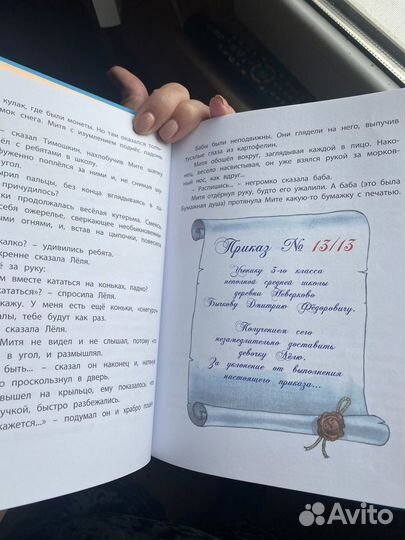 кулак, где были монеты. Но там оказался толь-
мок снега. Митя с изумлением поднёс ладонь
– сказал Тимошкин, нахлобучив Мите шапку
с ребятами в школу.
поплёлся за ними и, не снимая
угол.
пальцы, без конца вглядываясь в ла-
причудилось?
продолжалась весёлая кутерьма. Смеясь,
себя ожерелье, сверкающее необыкновенны-
огнями, и, встав на цыпочки, повесила
жалко? – удивились ребята.
сказала Лёля.
за руку:
вместе кататься на коньках, ладно?
– спросила Лёля.
У меня есть ещё коньки, «снегуро
тебе будут как раз.
сказала Лёля.
Митя не видел и не слышал, потому что
в угол, и размышлял.
быть... – сказал он наконец и, натянув
проскользнул в дверь.
вышел на крыльцо, ему показалось, что
быстро разбежались.
– подумал он и храбро пошёл
Бабы были неподвижны. Они глядели на него, выпучив
тусклые глаза из картофелин.
Митя обошёл вокруг, заглядывая каждой в лицо. Нако-
нец, весело насвистывая, он уже взялся рукой за морков-
ный нос, как вдруг...
– Распишись, – негромко сказала баба.
Митя отдёрнул руку, будто его ужалили. А баба (это была
Бумажная душа) протянула Мите какую-то бумажку с печатью.
Приказ № 13/13
Ученику 5-го класса
неполной средней школы
деревни Неверково
Бычкову Дмитрию Фёдоровичу.
Получением сего
незамедлительно доставить
девочку Лёлю.
За уклонение от выполнения
настоящего приказа...
Avito